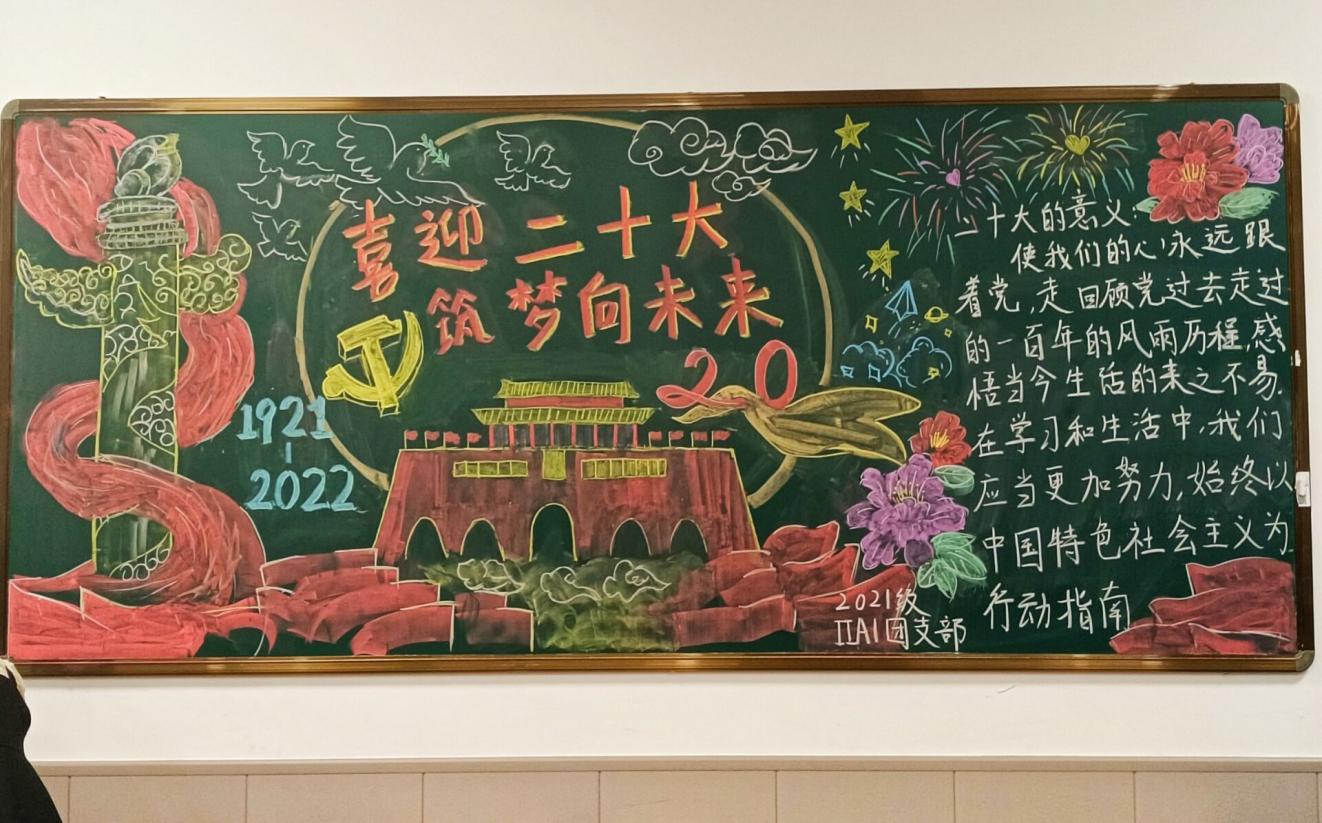 喜迎二十大
筑梦向未来
20
1921
|
2022
二十大的意义:
使我们的心永远跟
着党,走回顾党过去走过
的一百年的风雨历程,感
悟当今生活的来之不易.
在学习和生活中,我们
应当更加努力,始终以
中国特色社会主义为
行动指南
2021级
IIAI团支部